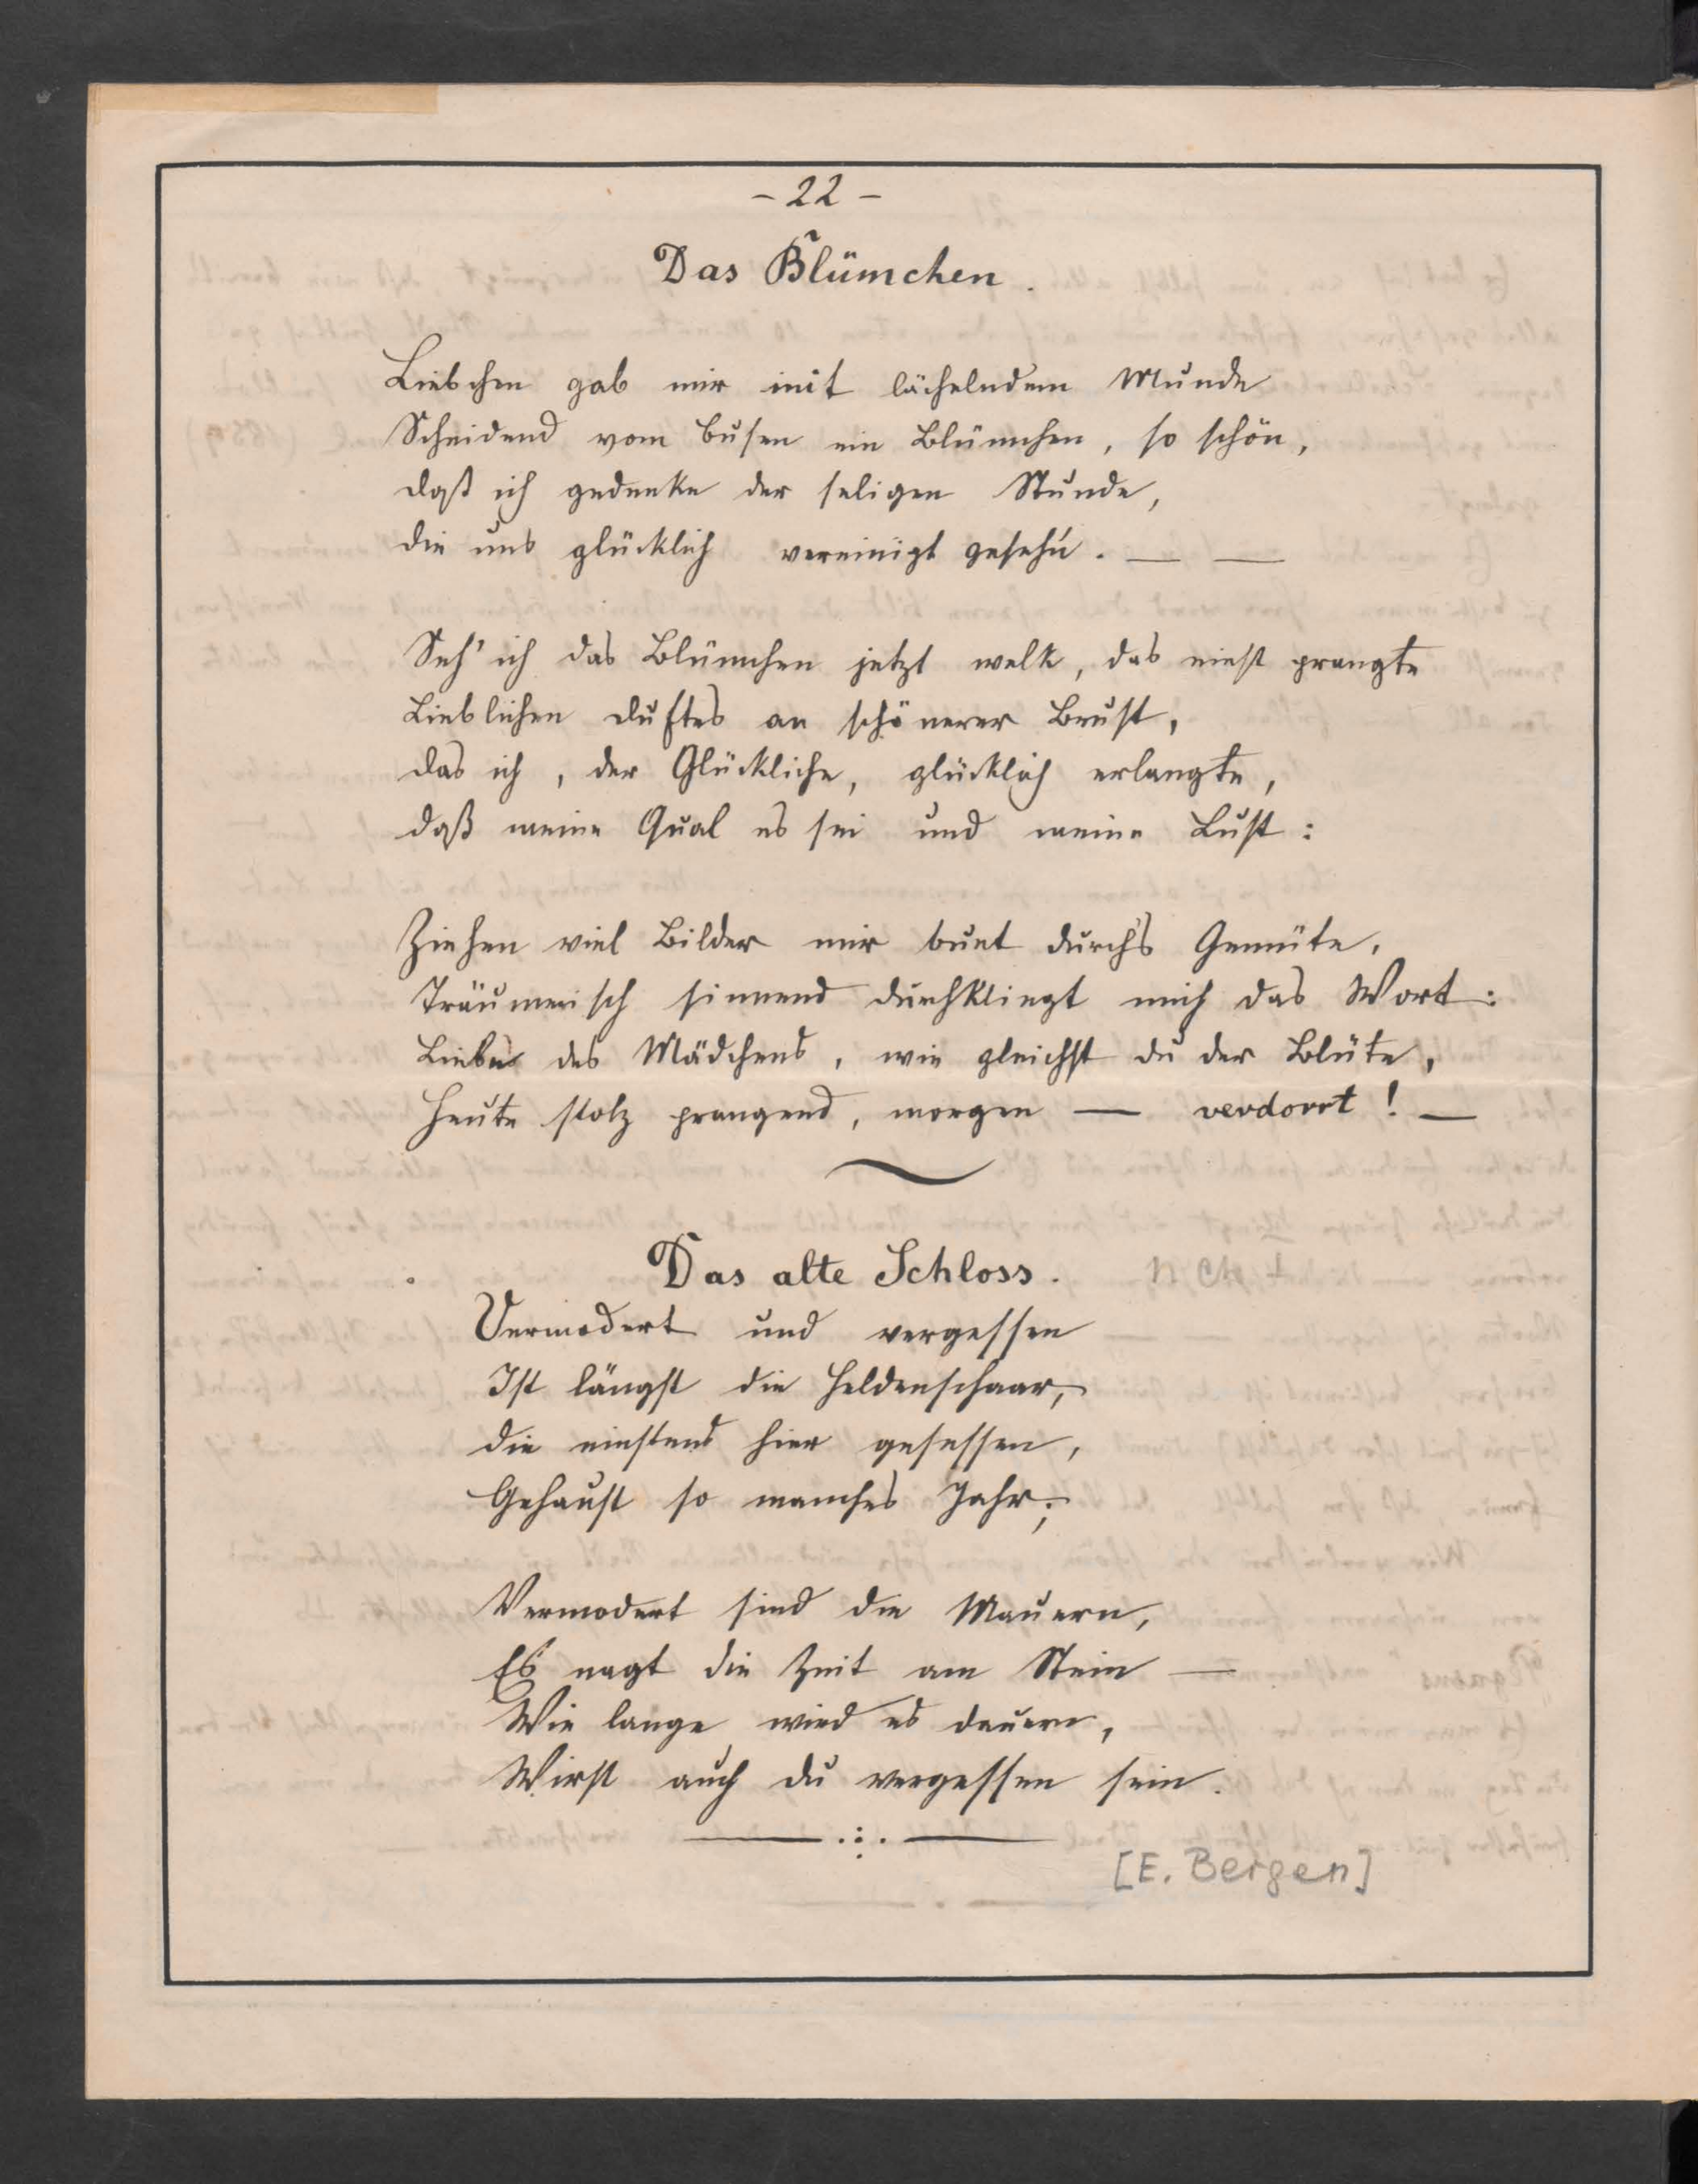 - 22 -
Das Blümchen.
Liebchen gab mir mit lächelndem Munde
Scheidend vom Busen ein Blümchen, so schön,
daß ich gedenke der seligen Stunde,
die uns glücklich vereinigt geseh'n. — —
Seh' ich das Blümchen jetzt welk, das einst prangte
Lieblichen Duftes an schönerer Brust,
das ich, der Glückliche, glücklich erlangte,
daß meine Qual es sei und meine Lust:
Ziehen viel Bilder mir bunt durch's Gemüte,
Träumerisch sinnend durchklingt mich das Wort:
Liebe des Mädchens, wie gleichst du der Blüte,
Heute stolz prangend, morgen — verdorrt! —
Das alte Schloss.
Vermodert und vergessen
Ist längst die Heldenschaar,
die einstens hier gesessen,
Gehaust so manches Jahr;
Vermodert sind die Mauern,
Es nagt die Zeit am Stein —
Wie lange wird es dauern,
Wirst auch du vergessen sein.
[E. Bergen]